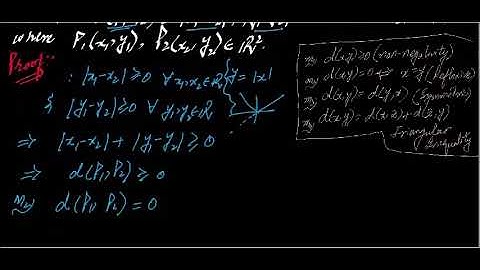 where P₁(x₁,y₁), P₂(x₂, y₂) ∈ ℝ².
Proof:-
: |x₁-x₂| ≥ 0 ∀ x₁,x₂ ∈ ℝ { y = |x|
& |y₁-y₂| ≥ 0 ∀ y₁,y₂ ∈ ℝ
⇒ |x₁-x₂| + |y₁-y₂| ≥ 0
⇒ d(P₁, P₂) ≥ 0
M₂) d(P₁, P₂) = 0
M₁) d(x,y) ≥ 0 (non-negativity)
M₂) d(x,y) = 0 ⇔ x = y (Reflexive)
M₃) d(x,y) = d(y,x) (Symmetric)
M₄) d(x,y) = d(x,z) + d(z,y)
Triangular
Inequality